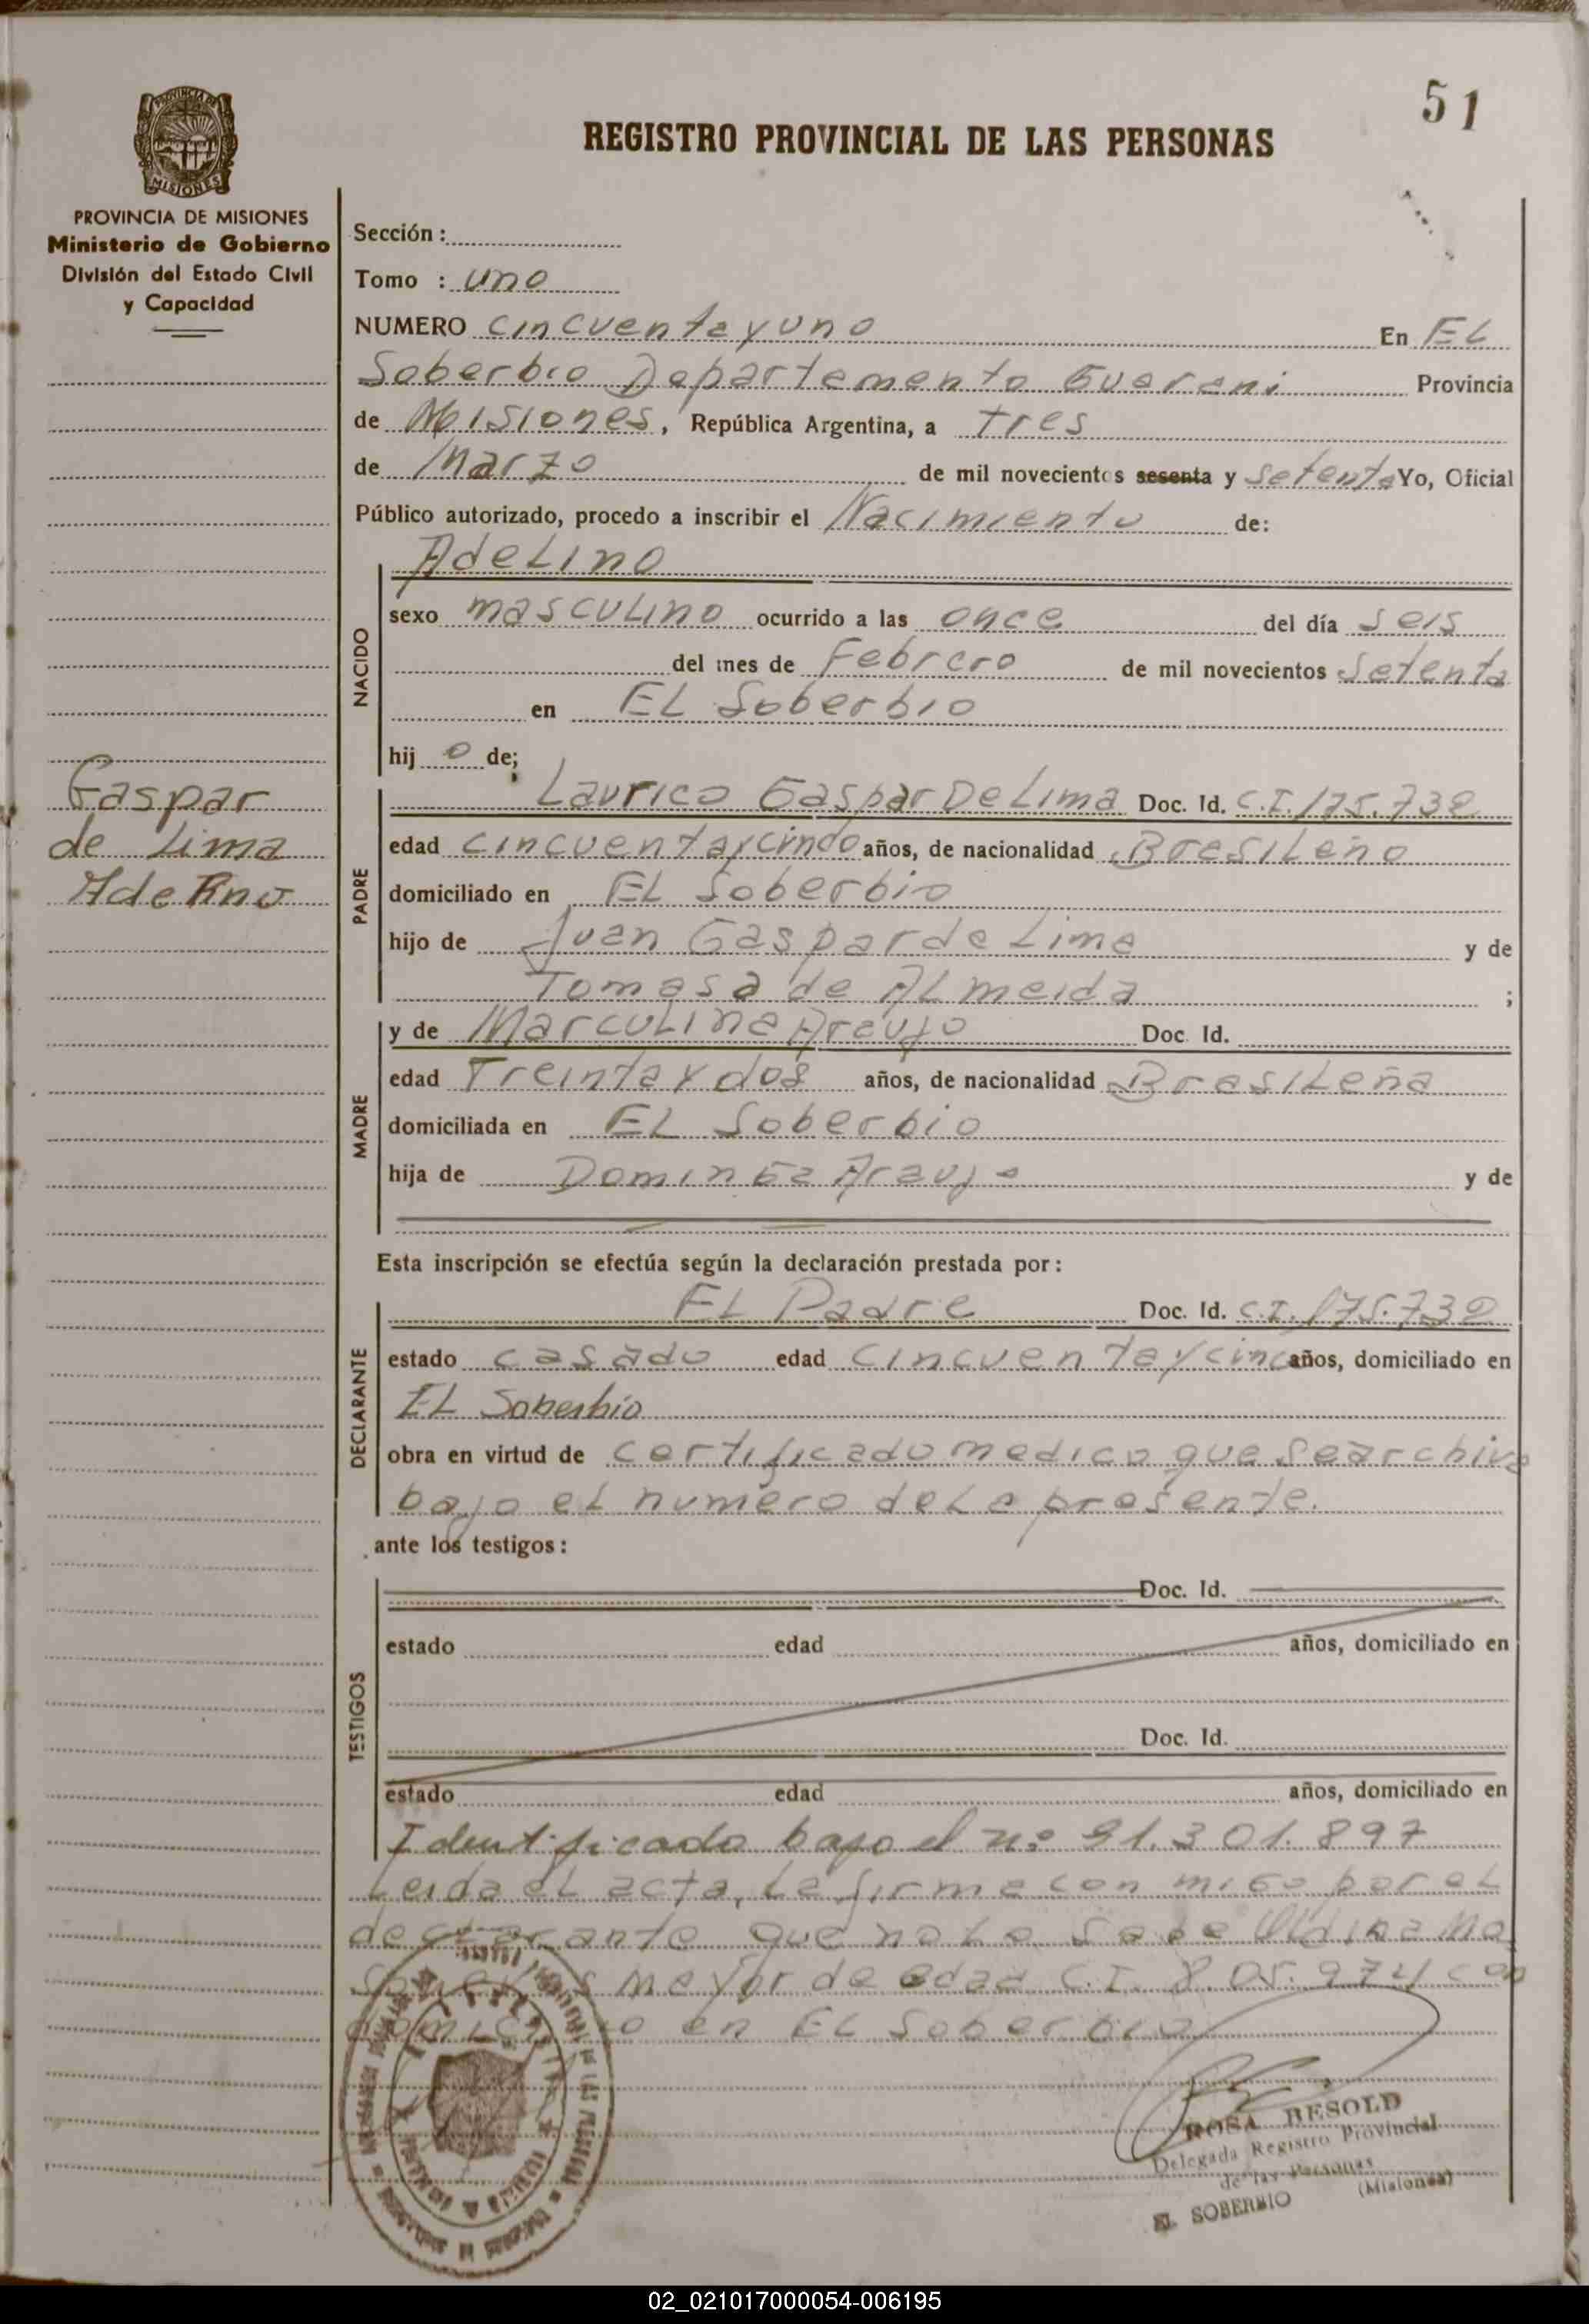 51
REGISTRO PROVINCIAL DE LAS PERSONAS
MISIONES
PROVINCIA DE MISIONES
Ministerio de Gobierno
División del Estado Civil
y Capacidad
Gaspar
de Lima
Adelino
Sección :
Tomo : uno
NUMERO cincuenta y uno En EL
Soberbio Departamento Guarani Provincia
de Misiones, República Argentina, a tres
de Marzo de mil novecientos sesenta y setenta Yo, Oficial
Público autorizado, procedo a inscribir el Nacimiento de:
NACIDO
AdeLino
sexo mascuLino ocurrido a las once del día seis
del mes de Febrero de mil novecientos setenta
en EL Soberbio
hij o de;
PADRE
Laurico Gaspar De Lima Doc. Id. C.I. 175.732
edad cincuenta y cinco años, de nacionalidad BrasiLeño
domiciliado en EL Soberbio
hijo de Juan Gaspar de Lima y de
Tomasa de ALmeida ;
MADRE
y de MarcuLina Araujo Doc. Id.
edad Treinta y dos años, de nacionalidad BrasiLeña
domiciliada en EL Soberbio
hija de Dominga Araujo y de
Esta inscripción se efectúa según la declaración prestada por :
DECLARANTE
EL Padre Doc. Id. C.I. 175.732
estado casado edad cincuenta y cinc años, domiciliado en
EL Soberbio
obra en virtud de certificado medico que se archiva
bajo eL numero de La presente.
ante los testigos :
TESTIGOS
Doc. Id.
estado edad años, domiciliado en
Doc. Id.
estado edad años, domiciliado en
Identificado bajo el nº 21.301.897
Leida eL acta, La firma con migo por eL
declarante que no Lo sabe
mayor de edad C.I. 8.05.974 con
domicilio en EL Soberbio
ROSA BESOLD
Delegada Registro Provincial
de las Personas
EL SOBERBIO (Misiones)
02_021017000054-006195